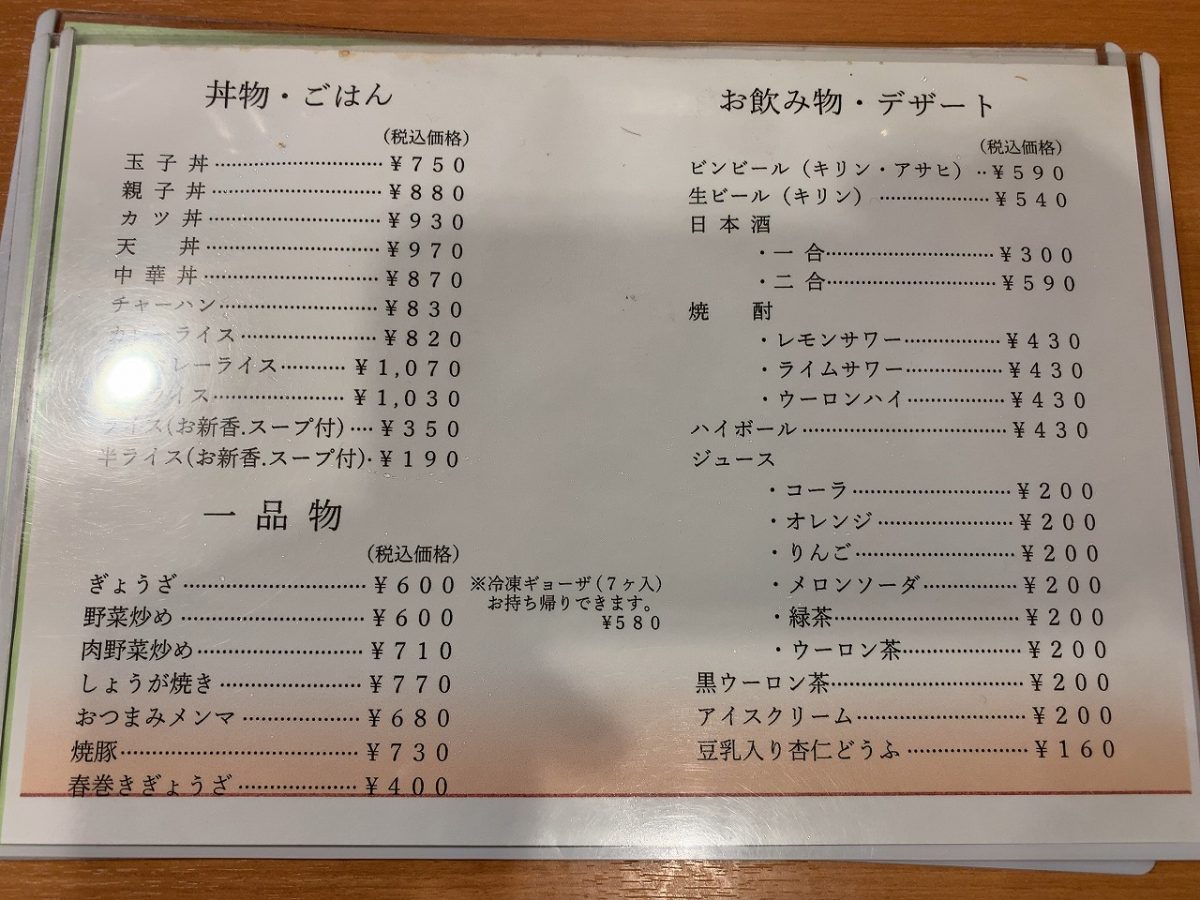 丼物・ごはん
(税込価格)
玉子丼 ¥750
親子丼 ¥880
カツ丼 ¥930
天丼 ¥970
中華丼 ¥870
チャーハン ¥830
カレーライス ¥820
レーライス ¥1,070
ライス ¥1,030
ライス(お新香.スープ付) ¥350
半ライス(お新香.スープ付) ¥190
一品物
(税込価格)
ぎょうざ ¥600
※冷凍ギョーザ(7ヶ入)
お持ち帰りできます。
¥580
野菜炒め ¥600
肉野菜炒め ¥710
しょうが焼き ¥770
おつまみメンマ ¥680
焼豚 ¥730
春巻きぎょうざ ¥400
お飲み物・デザート
(税込価格)
ビンビール(キリン・アサヒ) ¥590
生ビール(キリン) ¥540
日本酒
・一合 ¥300
・二合 ¥590
焼酎
・レモンサワー ¥430
・ライムサワー ¥430
・ウーロンハイ ¥430
ハイボール ¥430
ジュース
・コーラ ¥200
・オレンジ ¥200
・りんご ¥200
・メロンソーダ ¥200
・緑茶 ¥200
・ウーロン茶 ¥200
黒ウーロン茶 ¥200
アイスクリーム ¥200
豆乳入り杏仁どうふ ¥160